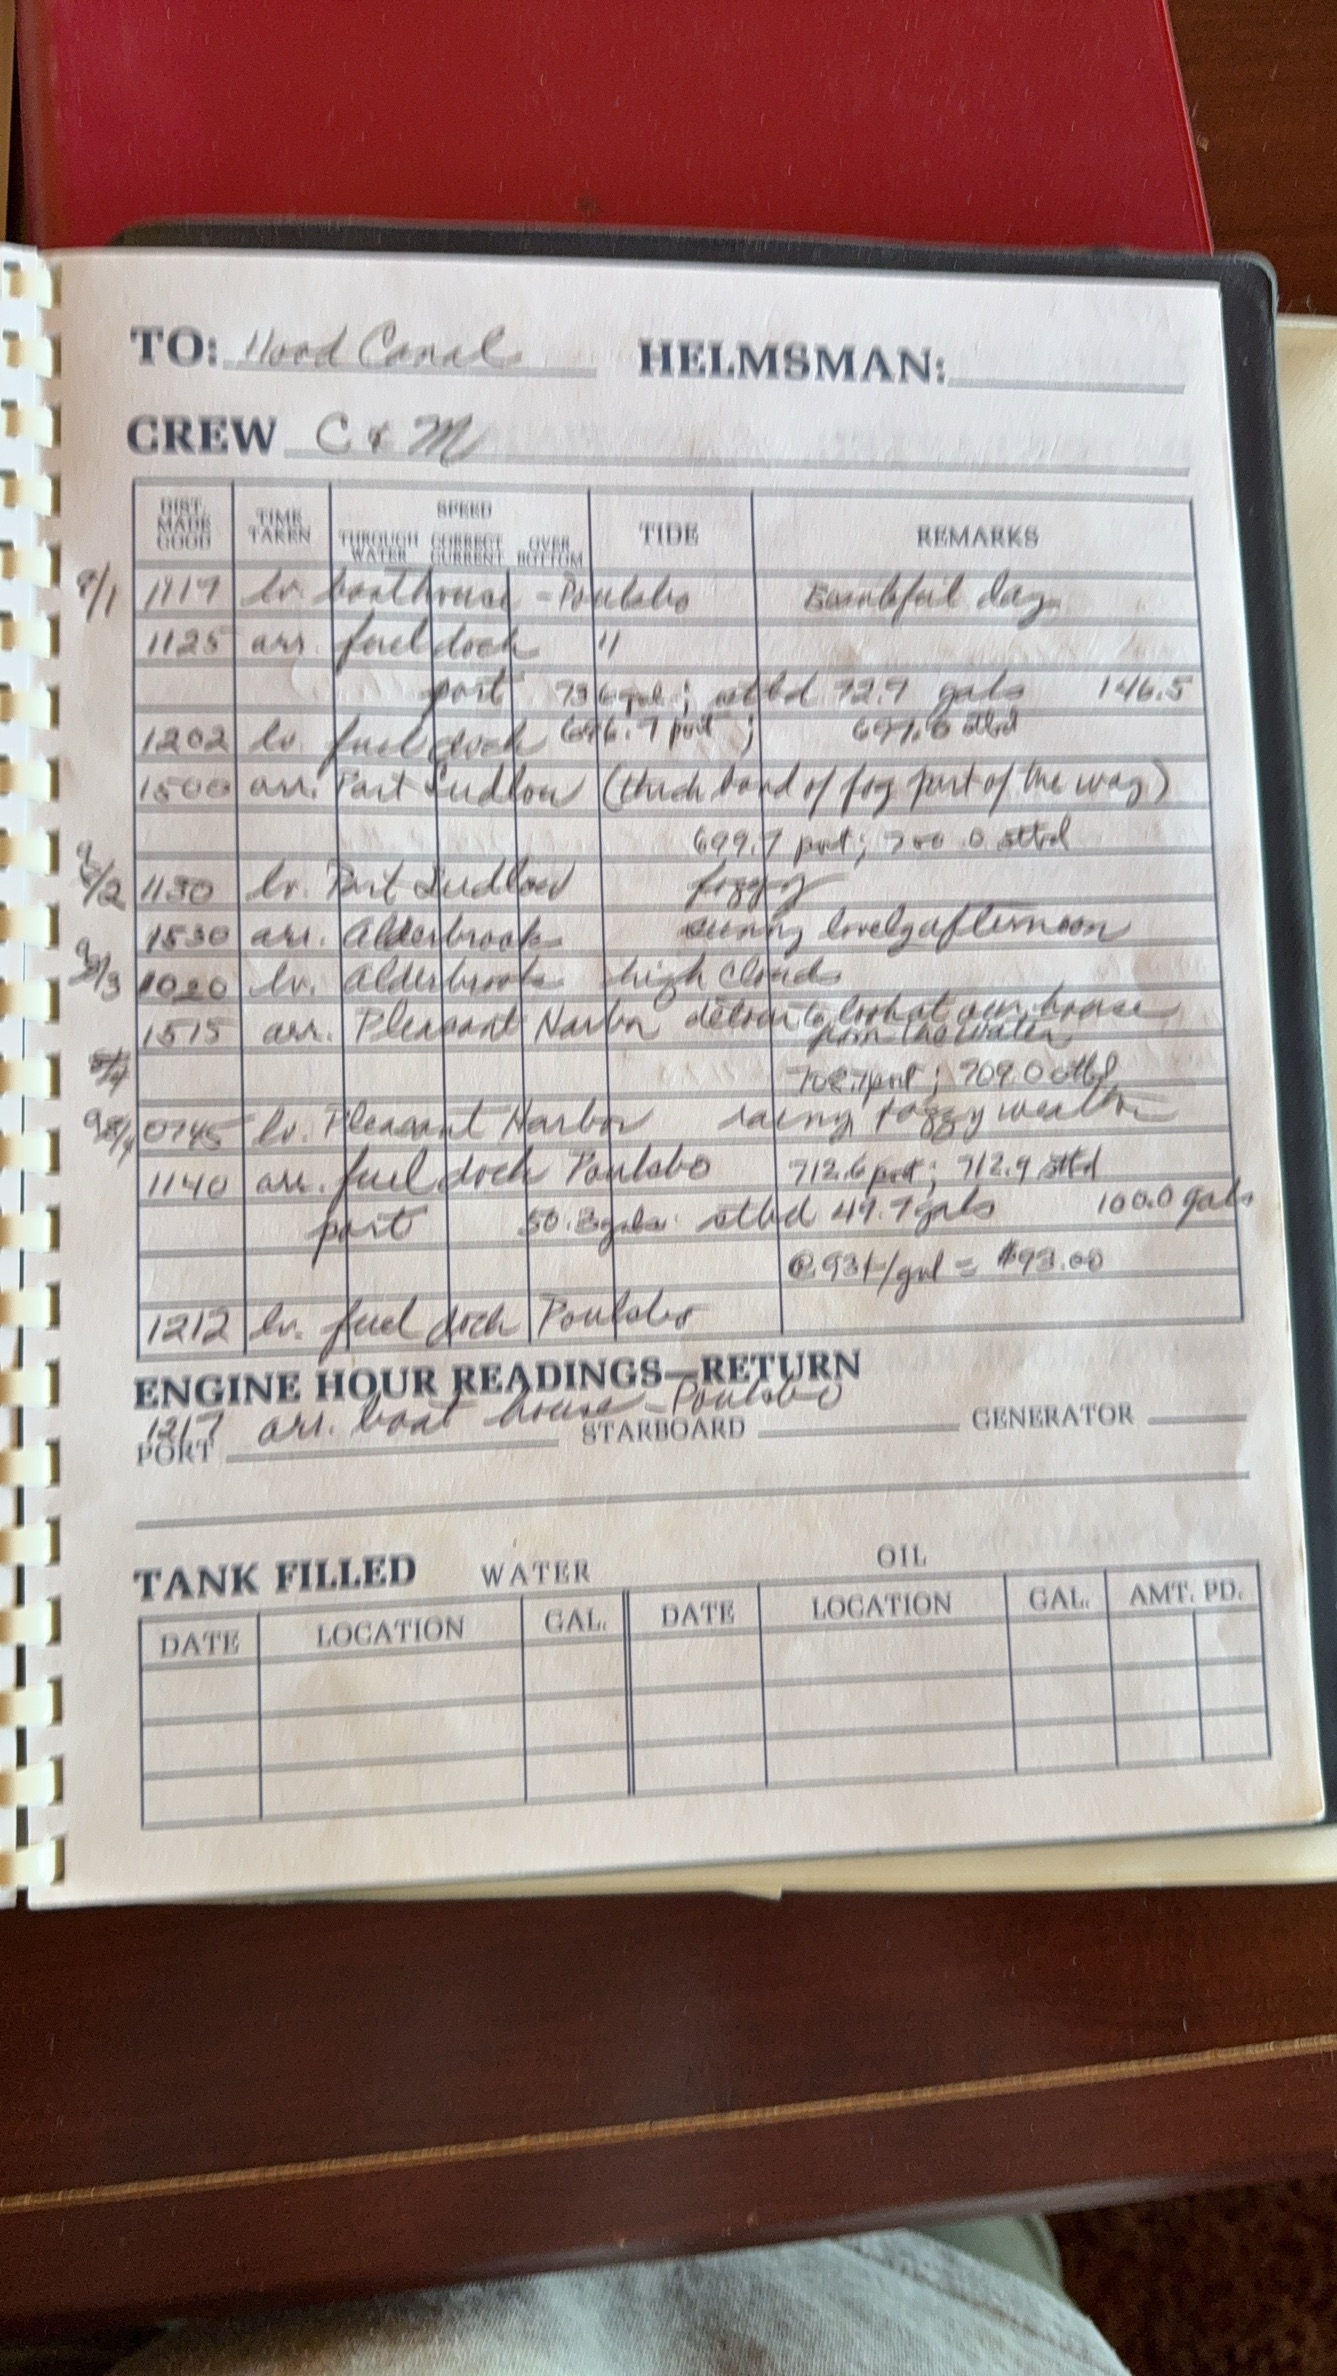 TO: Hood Canal HELMSMAN:
CREW C & M
DIST. MADE GOOD TIME TAKEN SPEED THROUGH WATER CORRECT CURRENT OVER BOTTOM TIDE REMARKS
9/1 1117 lv. boathouse - Poulsbo Beautiful day
1125 arr. fuel dock "
port 73.6 gal; stbd 72.9 gals 146.5
1202 lv. fuel dock 696.7 port; 697.0 stbd
1500 arr. Port Ludlow (thick band of fog part of the way)
699.7 port; 700.0 stbd
9/2 1130 lv. Port Ludlow foggy
1530 arr. Alderbrook sunny lovely afternoon
9/3 1020 lv. Alderbrook high clouds
1515 arr. Pleasant Harbor detour to look at our house from the water
708.7 port; 709.0 stbd
9/4 0745 lv. Pleasant Harbor rainy, foggy weather
1140 arr. fuel dock Poulsbo 712.6 port; 712.9 stbd
port 50.3 gals. stbd 49.7 gals 100.0 gals
@ .93¢/gal = $93.00
1212 lv. fuel dock Poulsbo
ENGINE HOUR READINGS—RETURN
1217 arr. boat house - Poulsbo
PORT STARBOARD GENERATOR
TANK FILLED WATER OIL
DATE LOCATION GAL. DATE LOCATION GAL. AMT. PD.